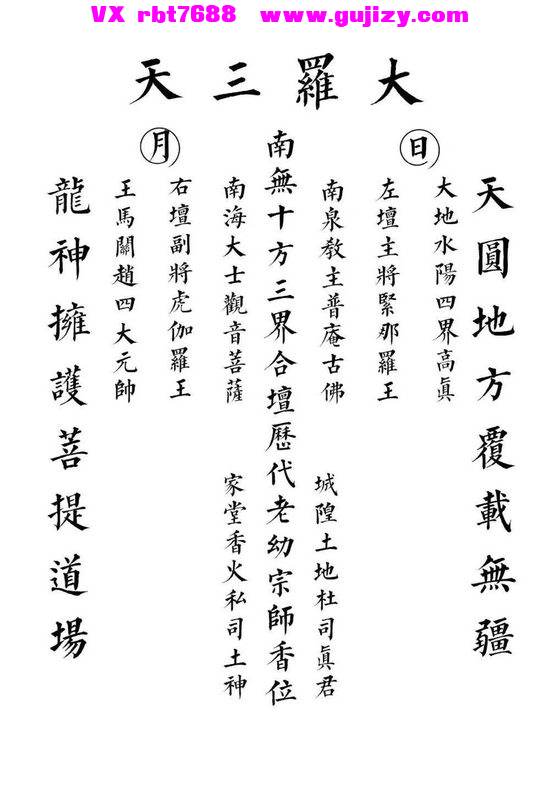 VX rbt7688 www.gujizy.com
大羅三天
日
月
天圓地方覆載無疆
大地水陽四界高眞
左壇主將緊那羅王
南泉教主普庵古佛
城隍土地杜司眞君
南無十方三界合壇歷代老幼宗師香位
南海大士觀音菩薩
家堂香火私司土神
右壇副將虎伽羅王
王馬關趙四大元帥
龍神擁護菩提道場